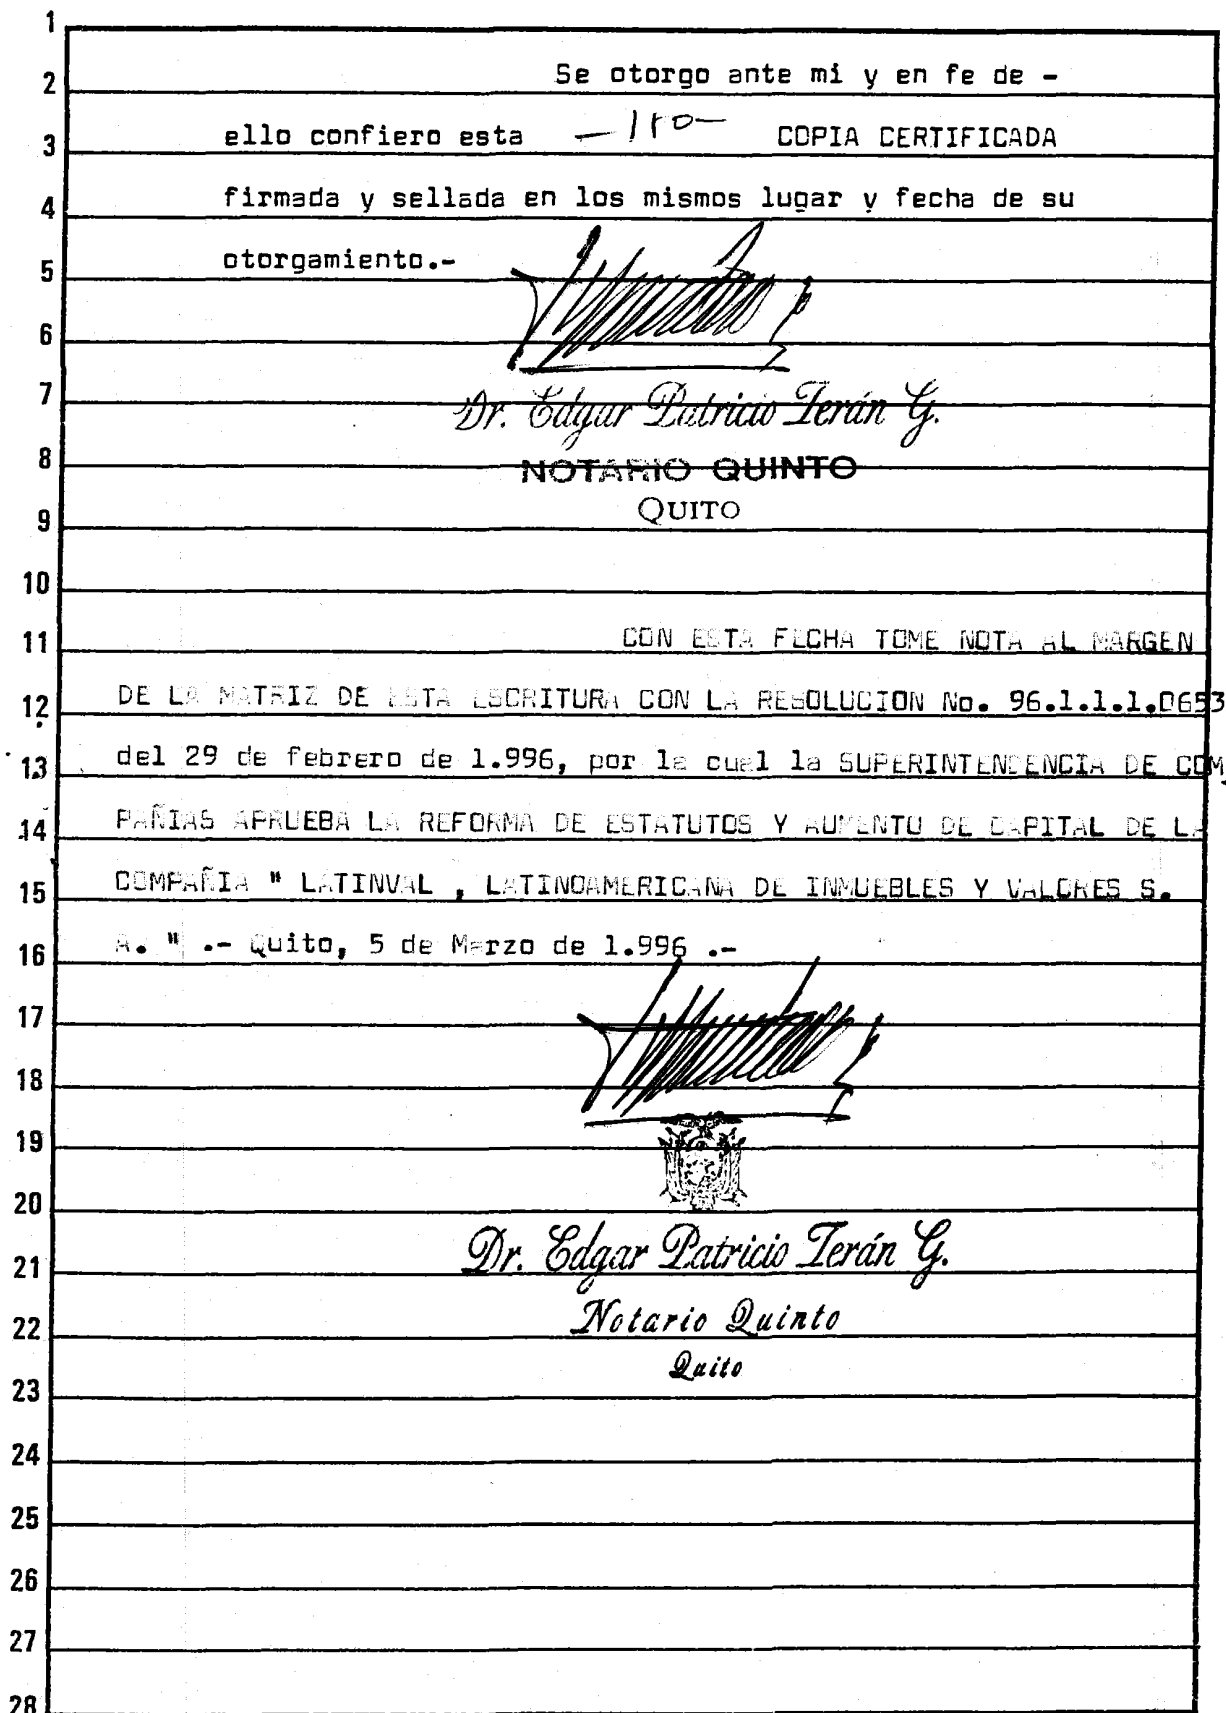 1
2 Se otorgo ante mi y en fe de -
3 ello confiero esta COPIA CERTIFICADA
4 firmada y sellada en los mismos lugar y fecha de su
5 otorgamiento.-
6
7 Dr. Edgar Patricio Terán G.
8 NOTARIO QUINTO
9 QUITO
10
11 CON ESTA FECHA TOME NOTA AL MARGEN
12 DE LA MATRIZ DE ESTA ESCRITURA CON LA RESOLUCION No. 96.1.1.1.0653
13 del 29 de febrero de 1.996, por la cual la SUPERINTENDENCIA DE COM
14 PAÑIAS APRUEBA LA REFORMA DE ESTATUTOS Y AUMENTO DE CAPITAL DE LA
15 COMPAÑIA " LATINVAL , LATINOAMERICANA DE INMUEBLES Y VALORES S.
16 A. " .- Quito, 5 de Marzo de 1.996 .-
17
18
19
20
21 Dr. Edgar Patricio Terán G.
22 Notario Quinto
Quito
23
24
25
26
27
28